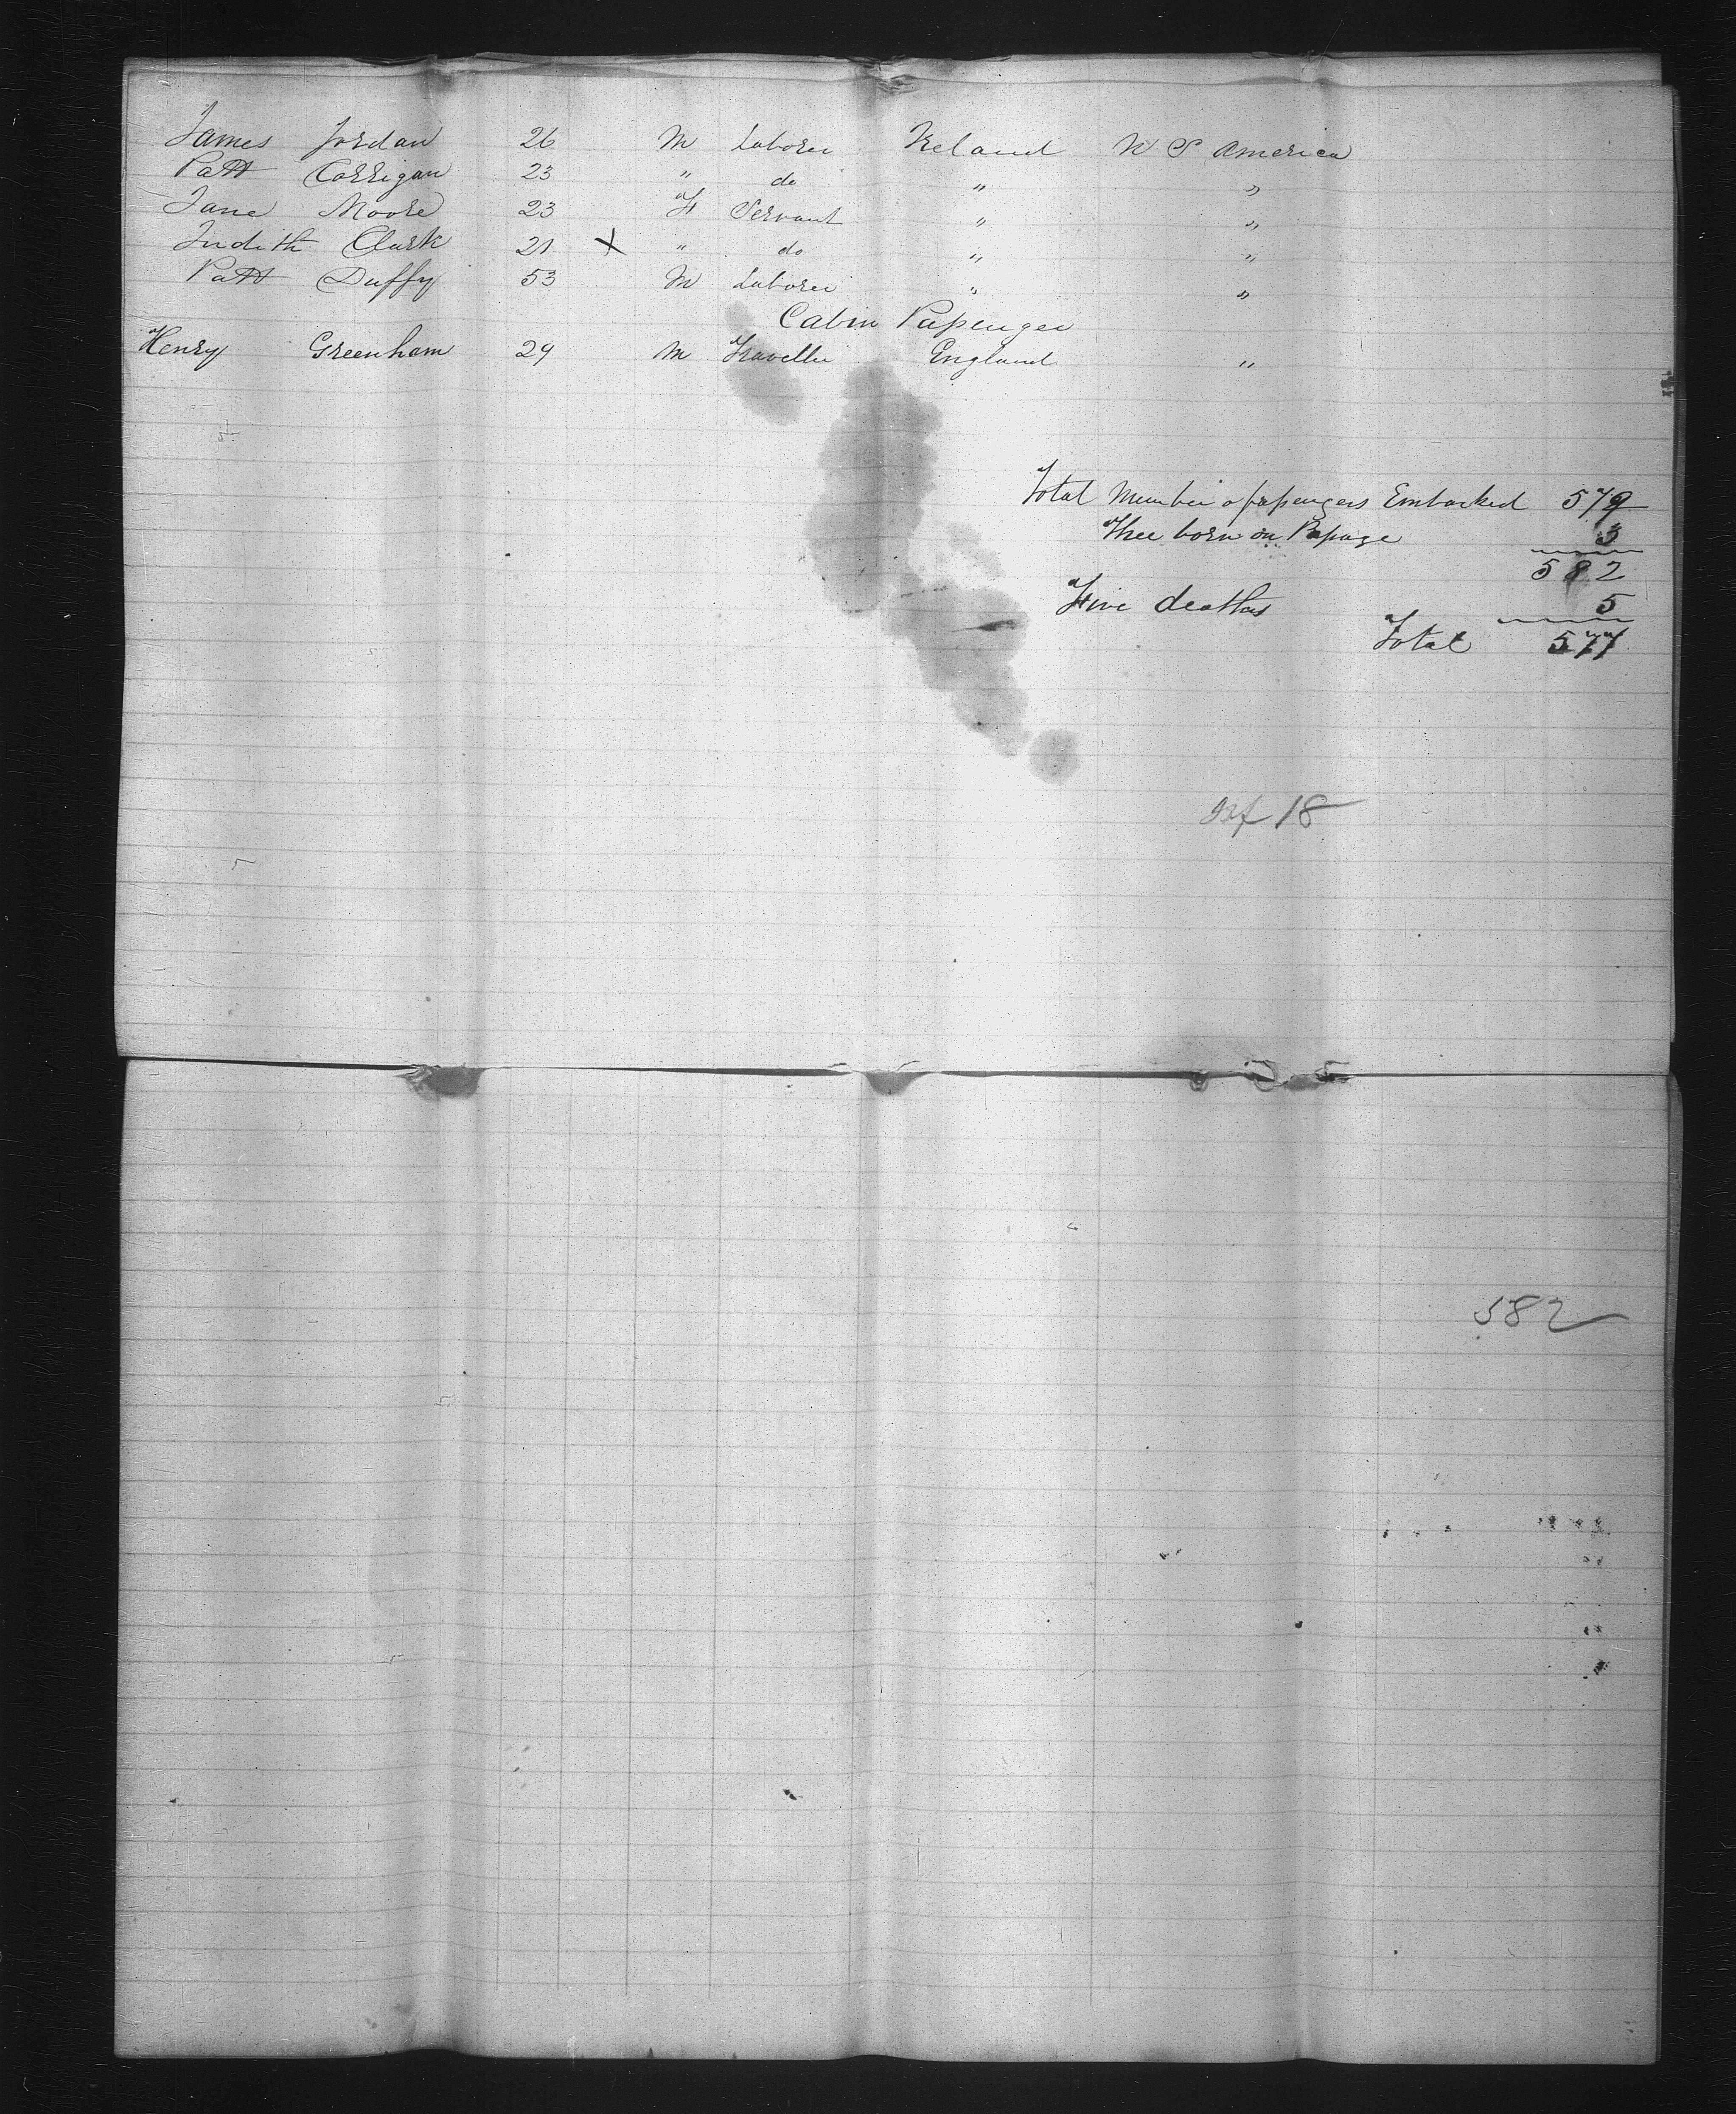 James Jordan 26 M Laborer Ireland U S America
Patt Corrigan 23 " do " "
Jane Moore 23 F Servant " "
Judith Clark 21 X " do " "
Patt Duffy 53 M Laborer " "
Cabin Passenger
Henry Greenham 29 M Traveller England "
Total Number of passengers Embarked 579
Three born on Passage 3
582
Five deaths 5
Total 577
18
582